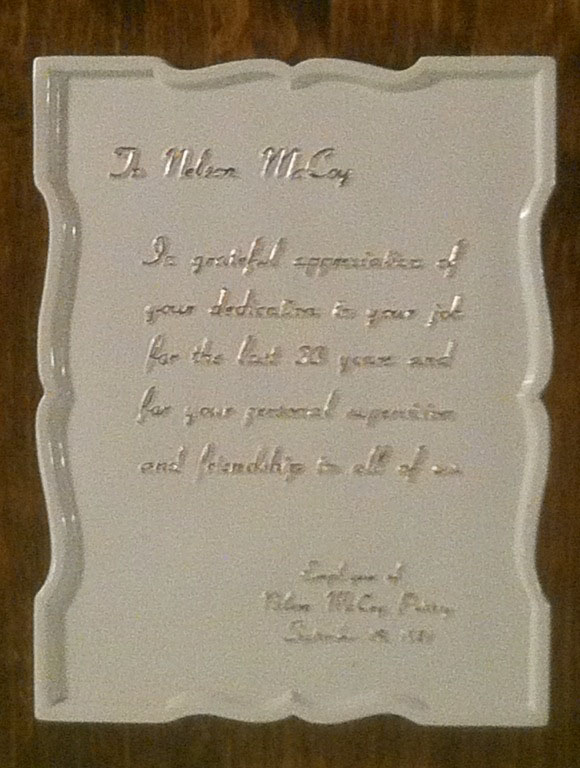 To Nelson McCoy
In grateful appreciation of
your dedication to your job
for the last 33 years and
for your personal supervision
and friendship to all of us
Employees of
Nelson McCoy Pottery
September